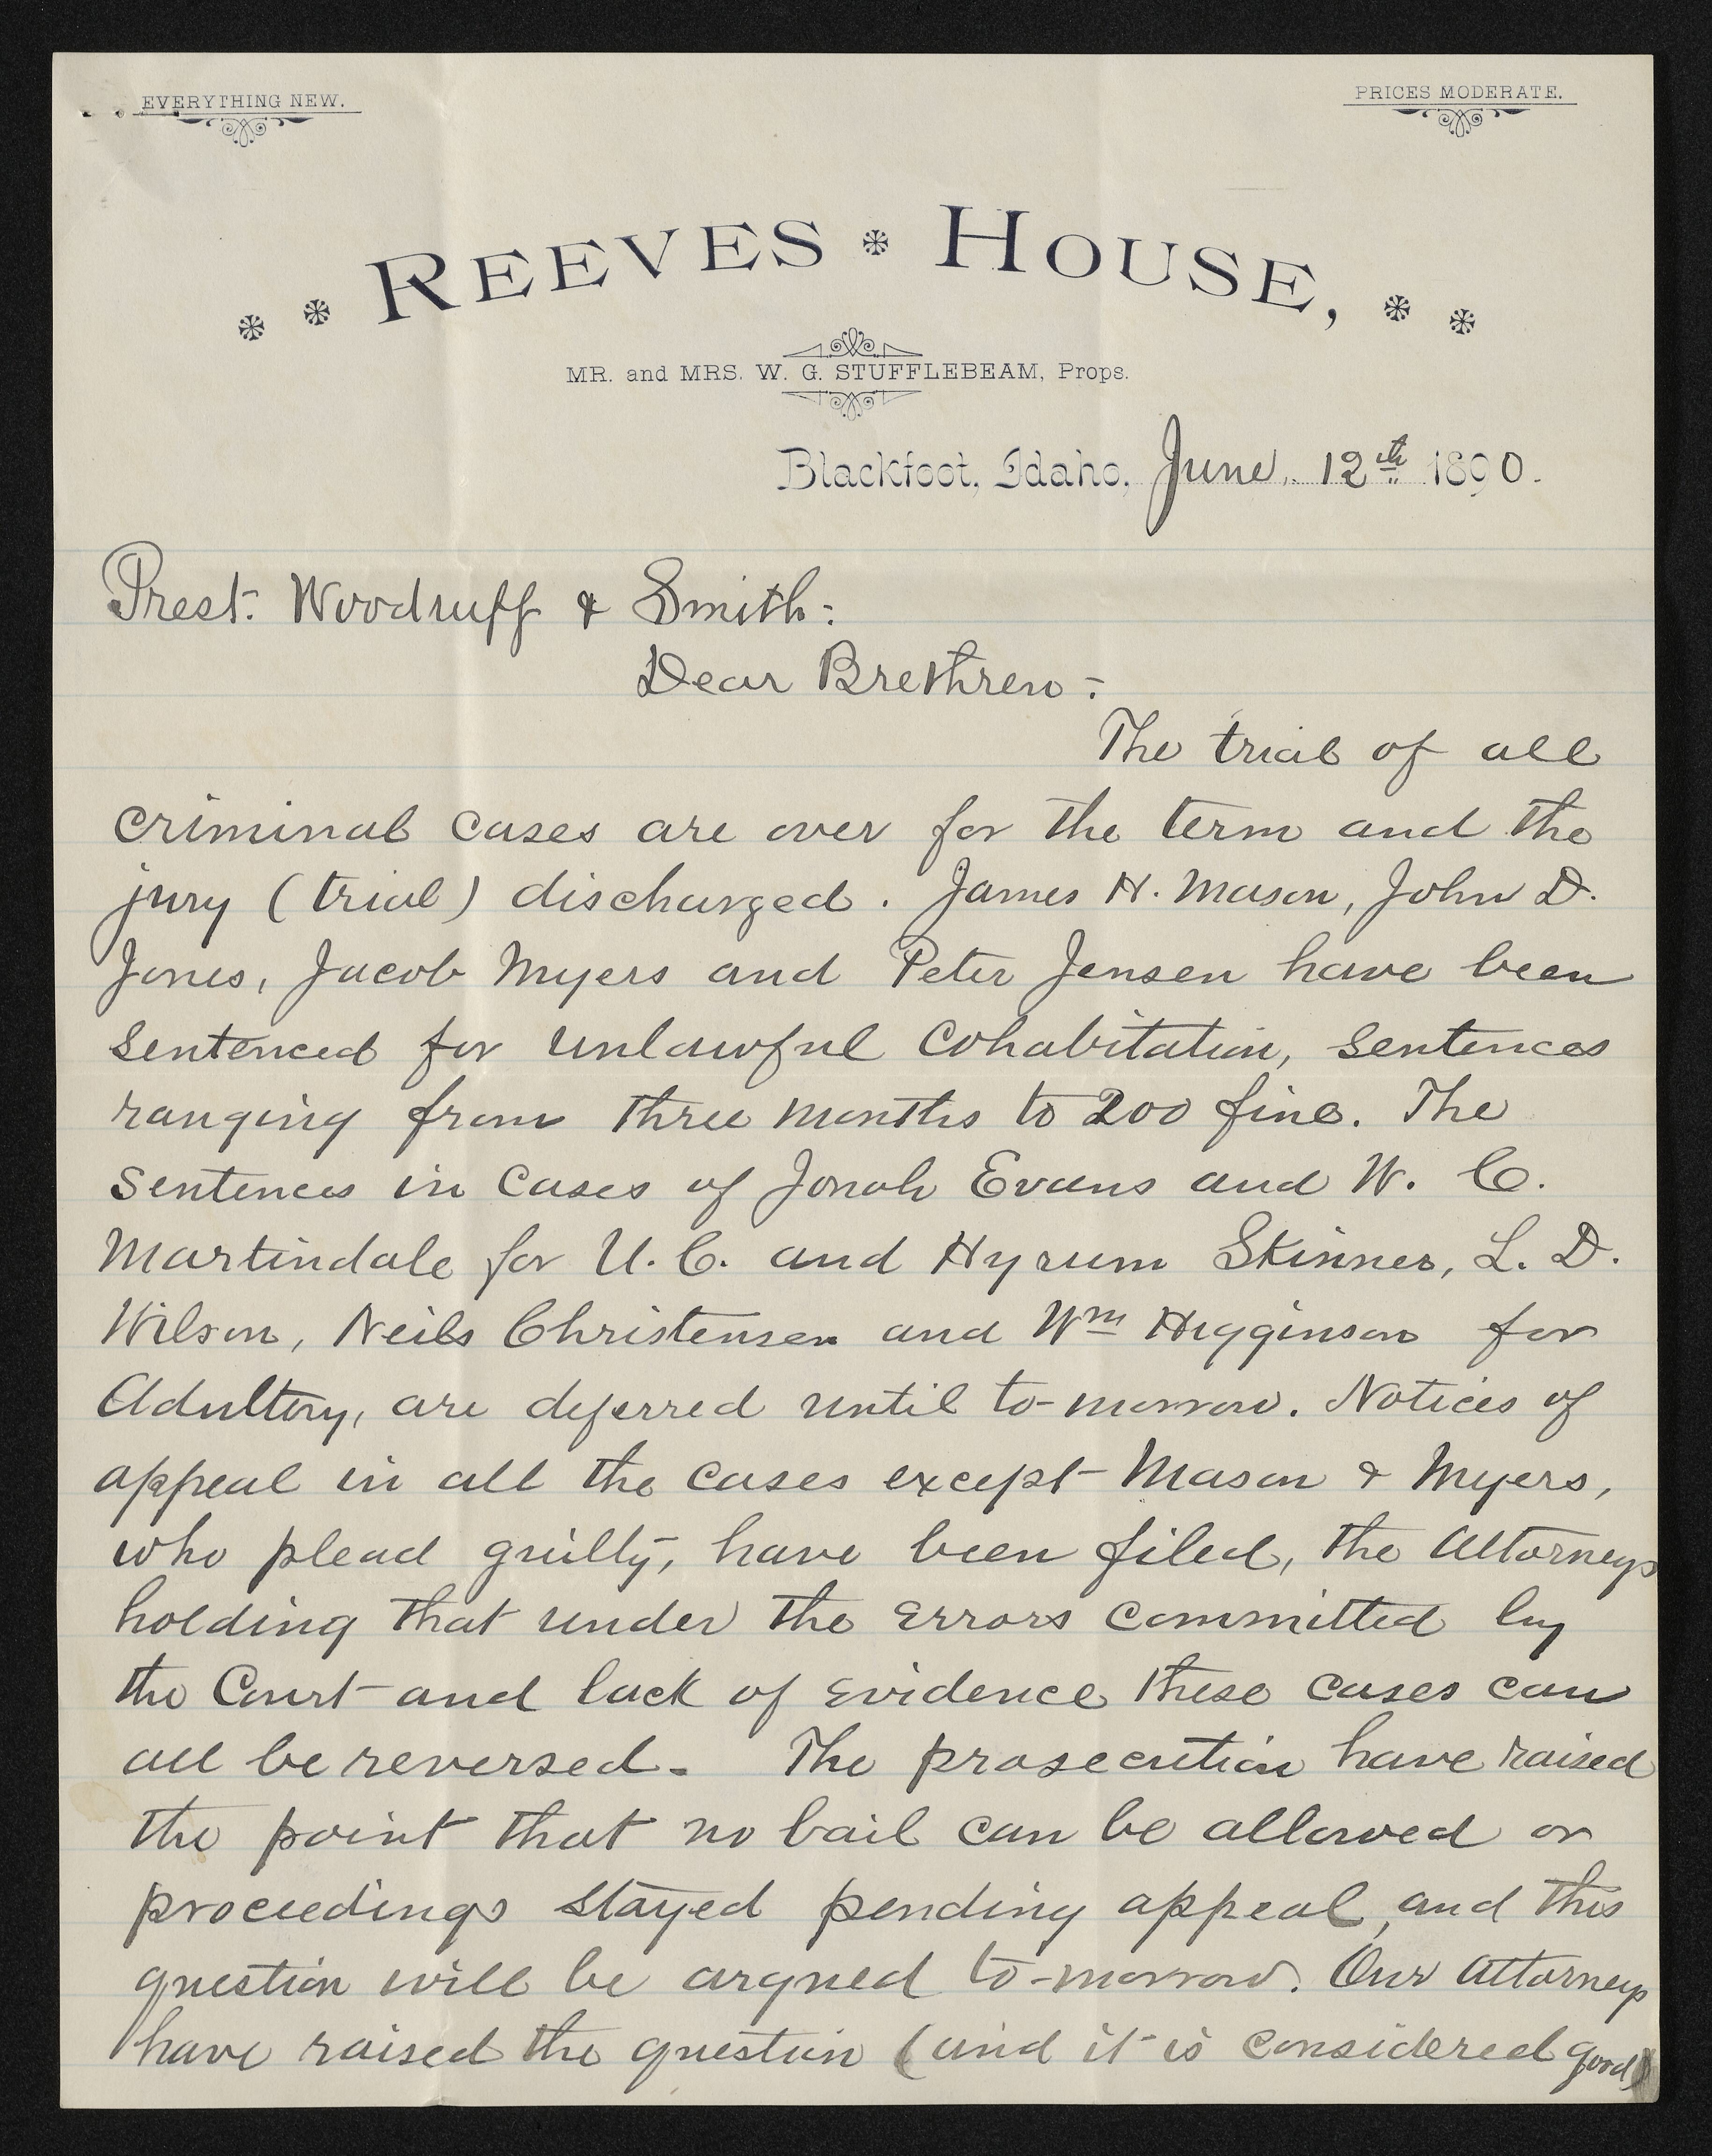 EVERYTHING NEW.
PRICES MODERATE.
REEVES * HOUSE,
MR. and MRS. W. G. STUFFLEBEAM, Props.
Blackfoot, Idaho, June 12th 1890.
Prest. Woodruff & Smith:
Dear Brethren:
The trial of all
criminal cases are over for the term and the
jury (trial) discharged. James H. Mason, John D.
Jones, Jacob Myers and Peter Jensen have been
sentenced for unlawful cohabitation, sentences
ranging from three months to 200 fine. The
sentences in cases of Jonah Evans and W. C.
Martindale for U. C. and Hyrum Skinner, L. D.
Wilson, Neils Christensen and Wm Higginson for
Adultery, are deferred until to-morrow. Notices of
appeal in all the cases except Mason & Myers,
who plead guilty, have been filed, the Attorneys
holding that under the errors committed by
the Court and lack of evidence these cases can
all be reversed. The prosecution have raised
the point that no bail can be allowed or
proceedings stayed pending appeal, and this
question will be argued to-morrow. Our attorneys
have raised the question (and it is considered good)